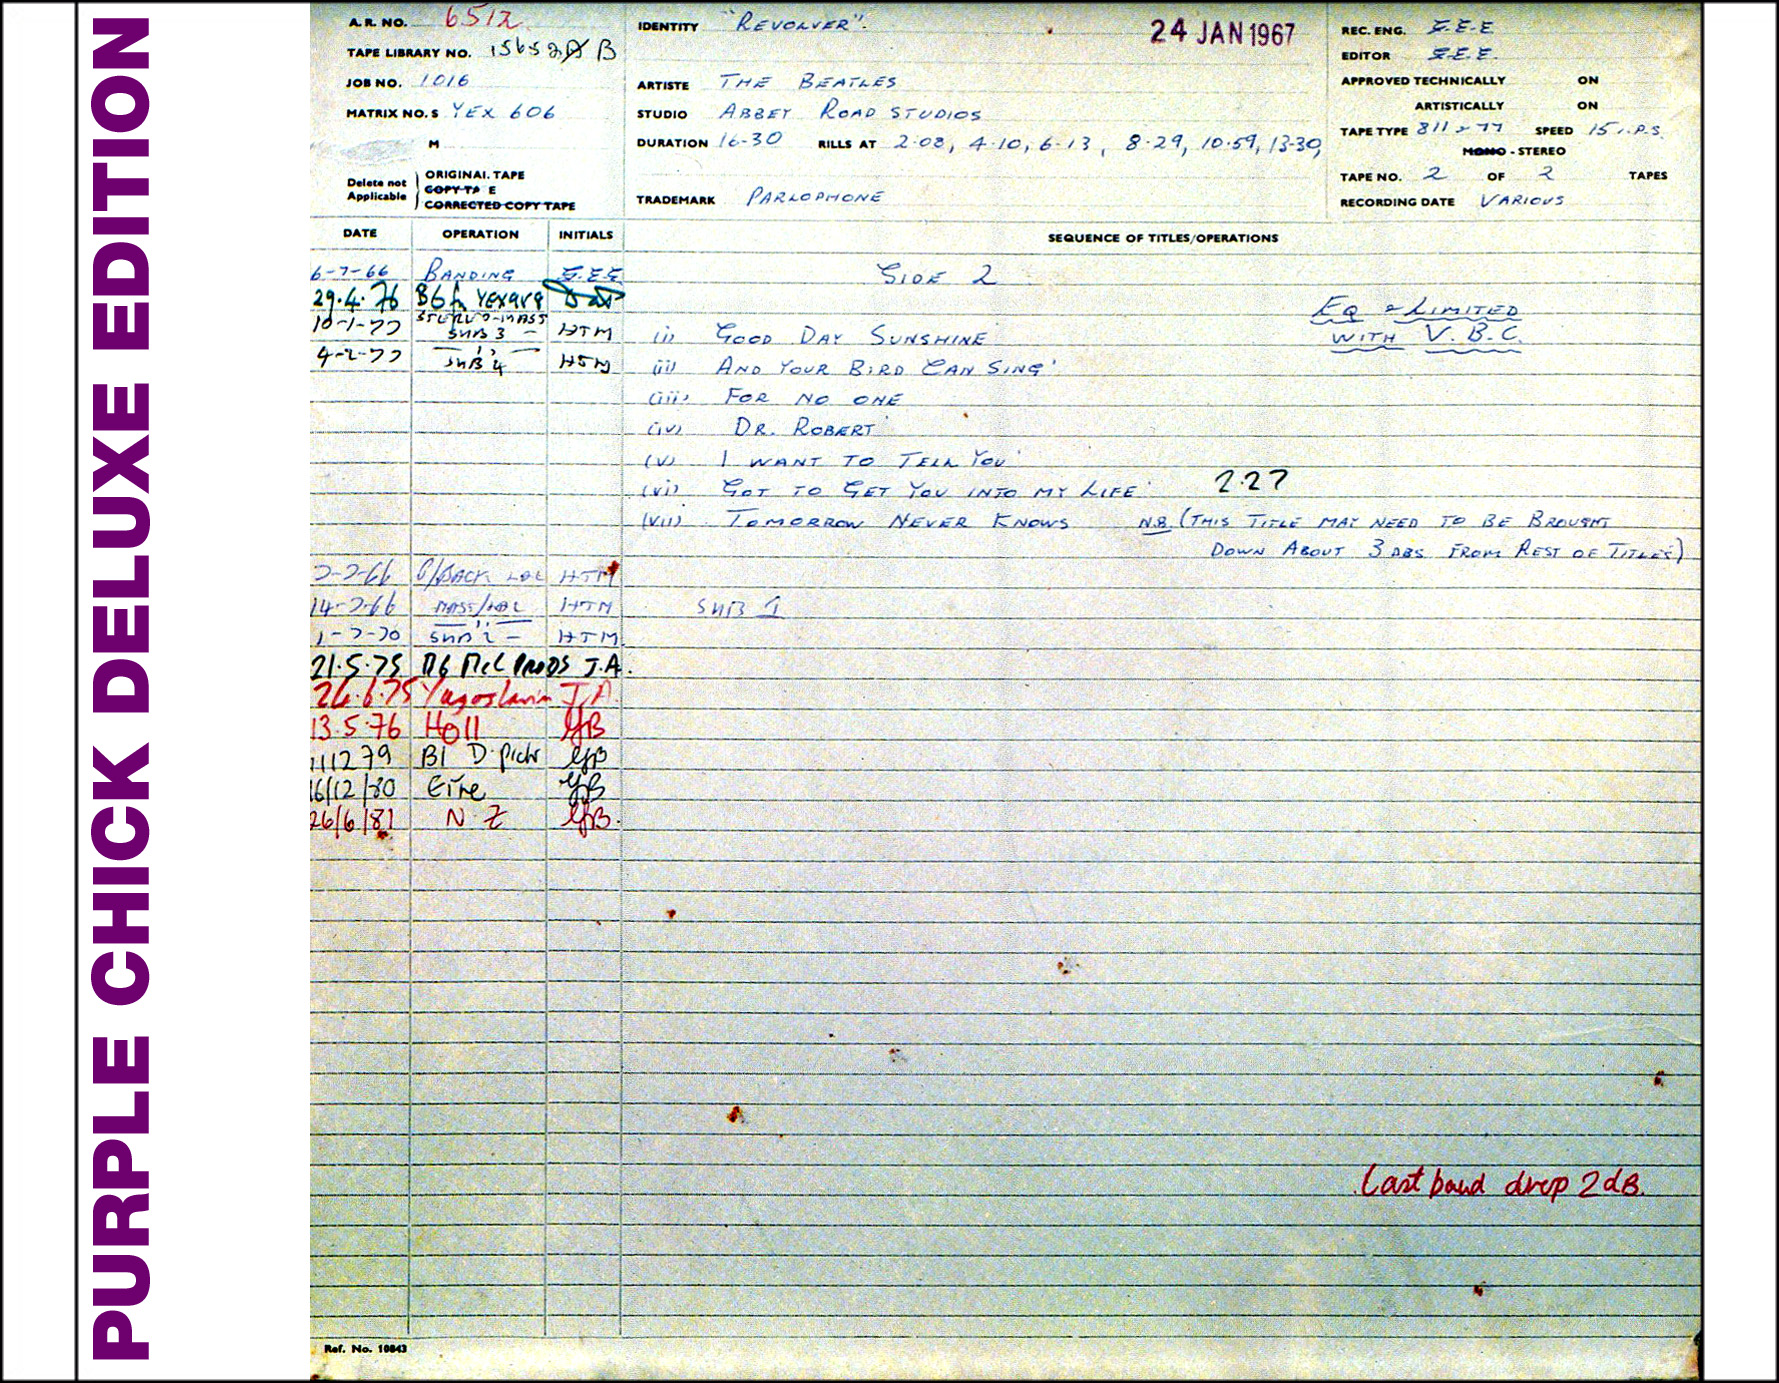 PURPLE CHICK DELUXE EDITION
A. R. NO. 6512
TAPE LIBRARY NO. B
JOB NO. 1016
MATRIX NO. S YEX 606
M
Delete not Applicable
ORIGINAL TAPE
COPY TAPE
CORRECTED COPY TAPE
IDENTITY "REVOLVER".
24 JAN 1967
ARTISTE THE BEATLES
STUDIO ABBEY ROAD STUDIOS
DURATION 16-30 RILLS AT 2.08, 4.10, 6-13, 8.29, 10.59, 13-30,
TRADEMARK PARLOPHONE
REC. ENG. G.E.E
EDITOR G.E.E.
APPROVED TECHNICALLY ON
ARTISTICALLY ON
TAPE TYPE 811 SPEED 15 I.P.S.
MONO - STEREO
TAPE NO. 2 OF 2 TAPES
RECORDING DATE VARIOUS
DATE OPERATION INITIALS SEQUENCE OF TITLES/OPERATIONS
6-7-66 BANDING G.E.E SIDE 2
29.4.76
EQ & LIMITED
WITH V.B.C.
10-1-77 SUB 3 HTM (i) GOOD DAY SUNSHINE
4-2-77 SUB 4 HTM (ii) AND YOUR BIRD CAN SING'
(iii) FOR NO ONE
(iv) DR. ROBERT
(v) I WANT TO TELL YOU
(vi) GOT TO GET YOU INTO MY LIFE 2.27
(vii) TOMORROW NEVER KNOWS N.B. (THIS TITLE MAY NEED TO BE BROUGHT
DOWN ABOUT 3 DBS FROM REST OF TITLES)
7-7-66 HTM
14-7-66 HTM SUB 1
1-7-70 SUB 2 - HTM
21.5.75 J.A.
24.6.75 Yugoslavia J.A.
13.5.76 Holl GB
111279 GB
16/12/80 Eire GB
26/6/81 N Z GB.
Last band drop 2dB.
Ref. No. 10843